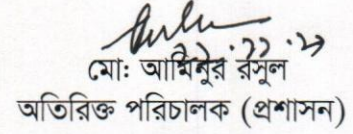 মোঃ আমিনুর রসুল
অতিরিক্ত পরিচালক (প্রশাসন)